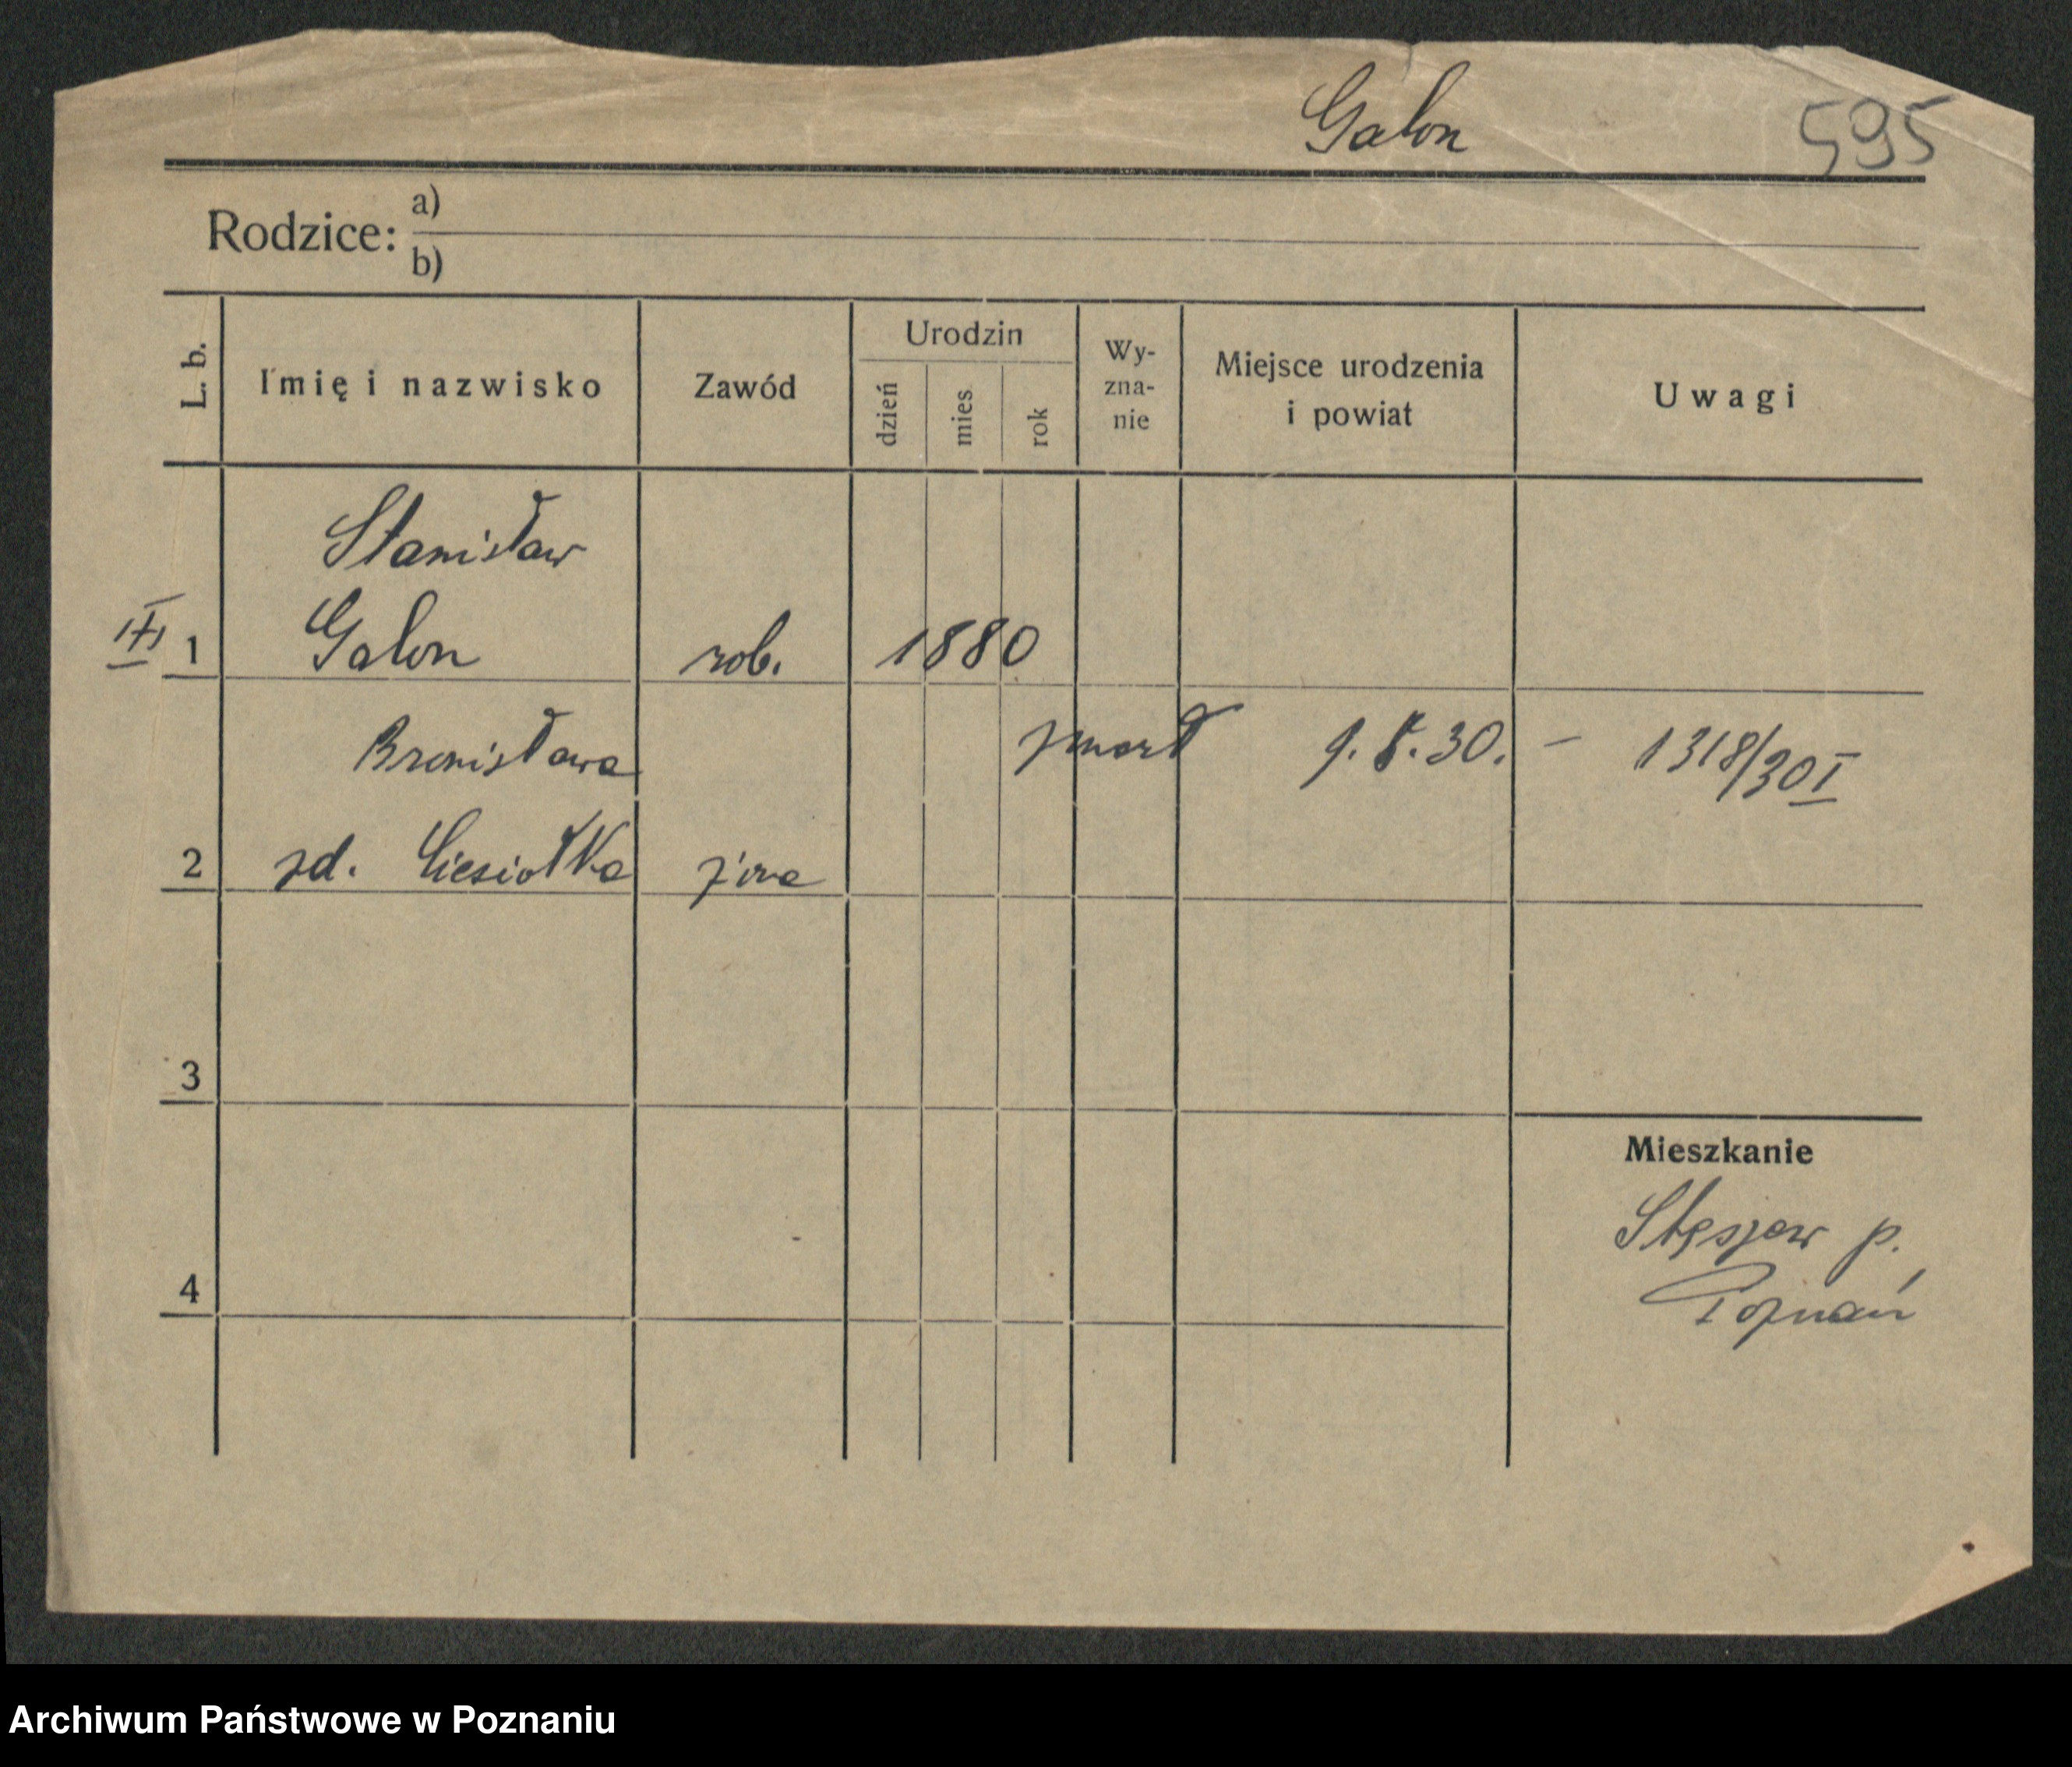 Galon 595
Rodzice: a)
b)
L. b.
Imię i nazwisko
Zawód
Urodzin
dzień
mies
rok
Wy-
zna-
nie
Miejsce urodzenia
i powiat
Uwagi
Stanisław
III 1 Galon rob. 1880
Bronisława zmarł 9. 8. 30. – 1318/30 I
2 zd. Ciesiołka żona
3
Mieszkanie
Stęszew p.
4 Poznań
Archiwum Państwowe w Poznaniu